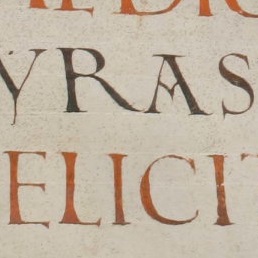 YRAS
ELICIT